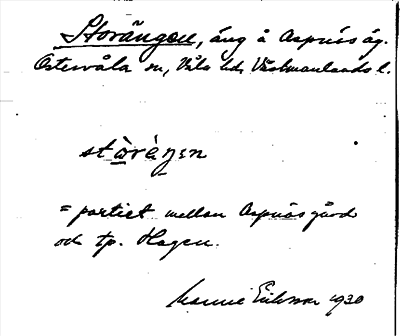 Storängen, äng å Aspnäs äg.
Östervåla sn, Våla hd, Västmanlands l.
stòrèŋen
= partiet mellan Aspnäs gård
och tp. Hagen.
Mannie Eriksson 1930